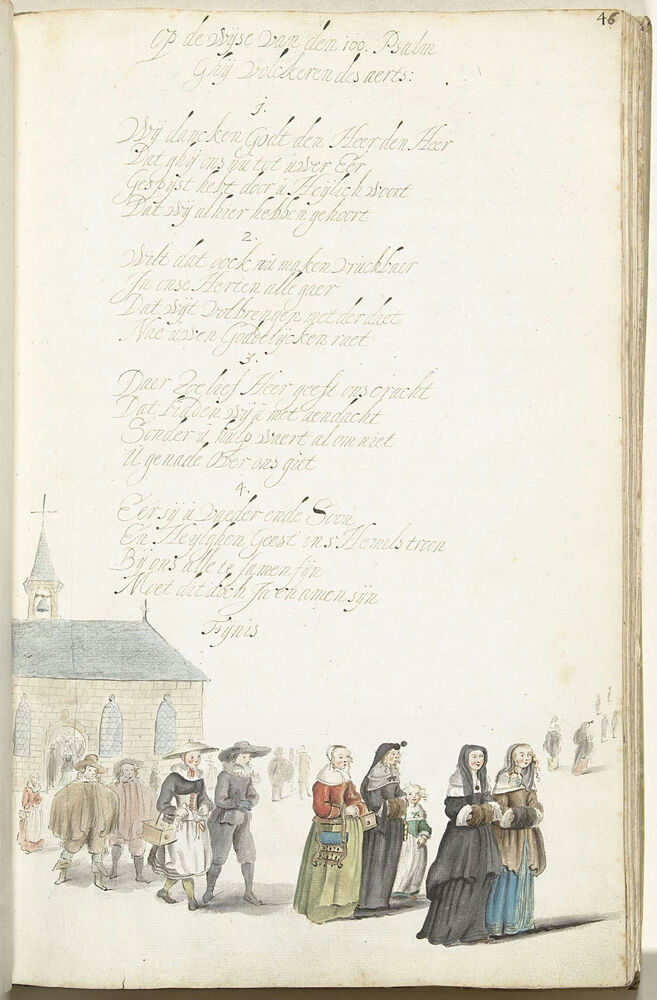 46
Op de wijse van den 100. Psalm
Ghij volckeren des aerts:
1.
Wij dancken Godt den Heer den Heer
Dat ghij ons nu tot uwer Eer
Gespijst hebt door u Heylich woort
Dat wij alhier hebben gehoort
2.
Wilt dat oock nu maken vruchbaer
In onse Herten alle gaer
Dat wijt volbrengen met der daet
Nae uwen Goddelijcken raet
3.
Daer toe lief Heer geeft ons cracht
Dat wij u met aendacht
Sonder u hulp waert al om niet
U genade over ons giet
4.
Eer sij u Vaeder ende Soon
En Heylghen Geest in s'Hemels troon
Bij ons alle te samen sijn
Moet dit toch Ja en amen sijn
Fijnis